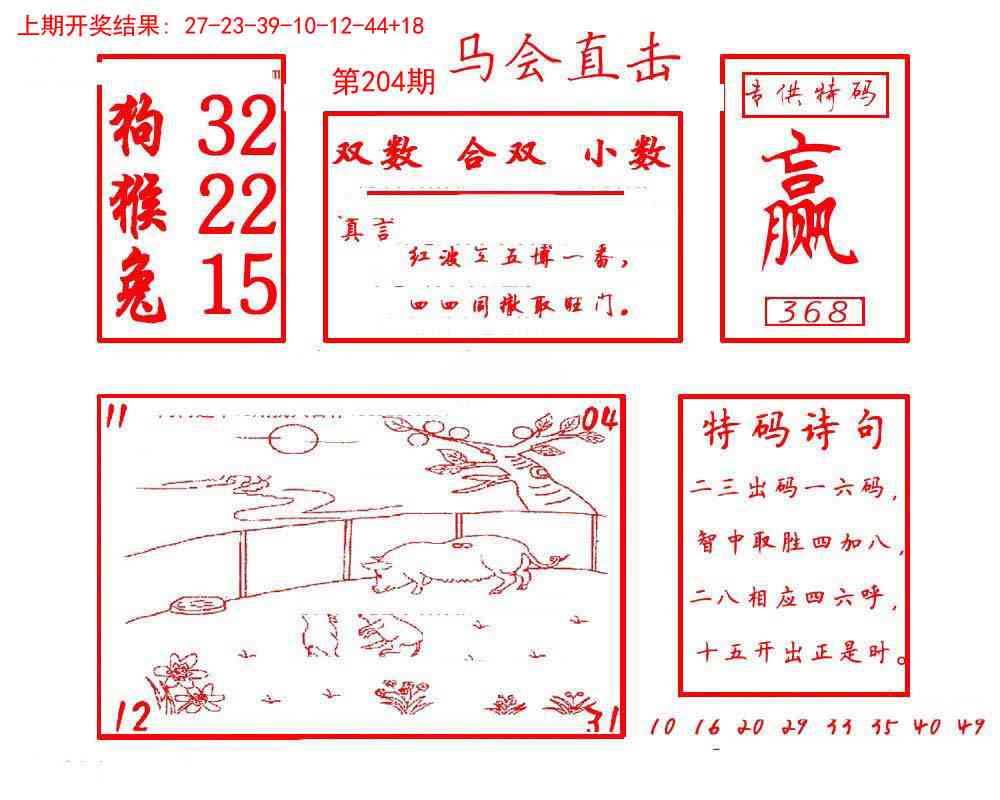 上期开奖结果: 27-23-39-10-12-44+18
第204期 马会直击
狗 32
猴 22
兔 15
双数 合双 小数
真言
红波 五博一番,
四四同撤取旺门。
专供特码
赢
368
11
04
12
31
特码诗句
二三出码一六码,
智中取胜四加八,
二八相应四六呼,
十五开出正是时。
10 16 20 29 33 35 40 49